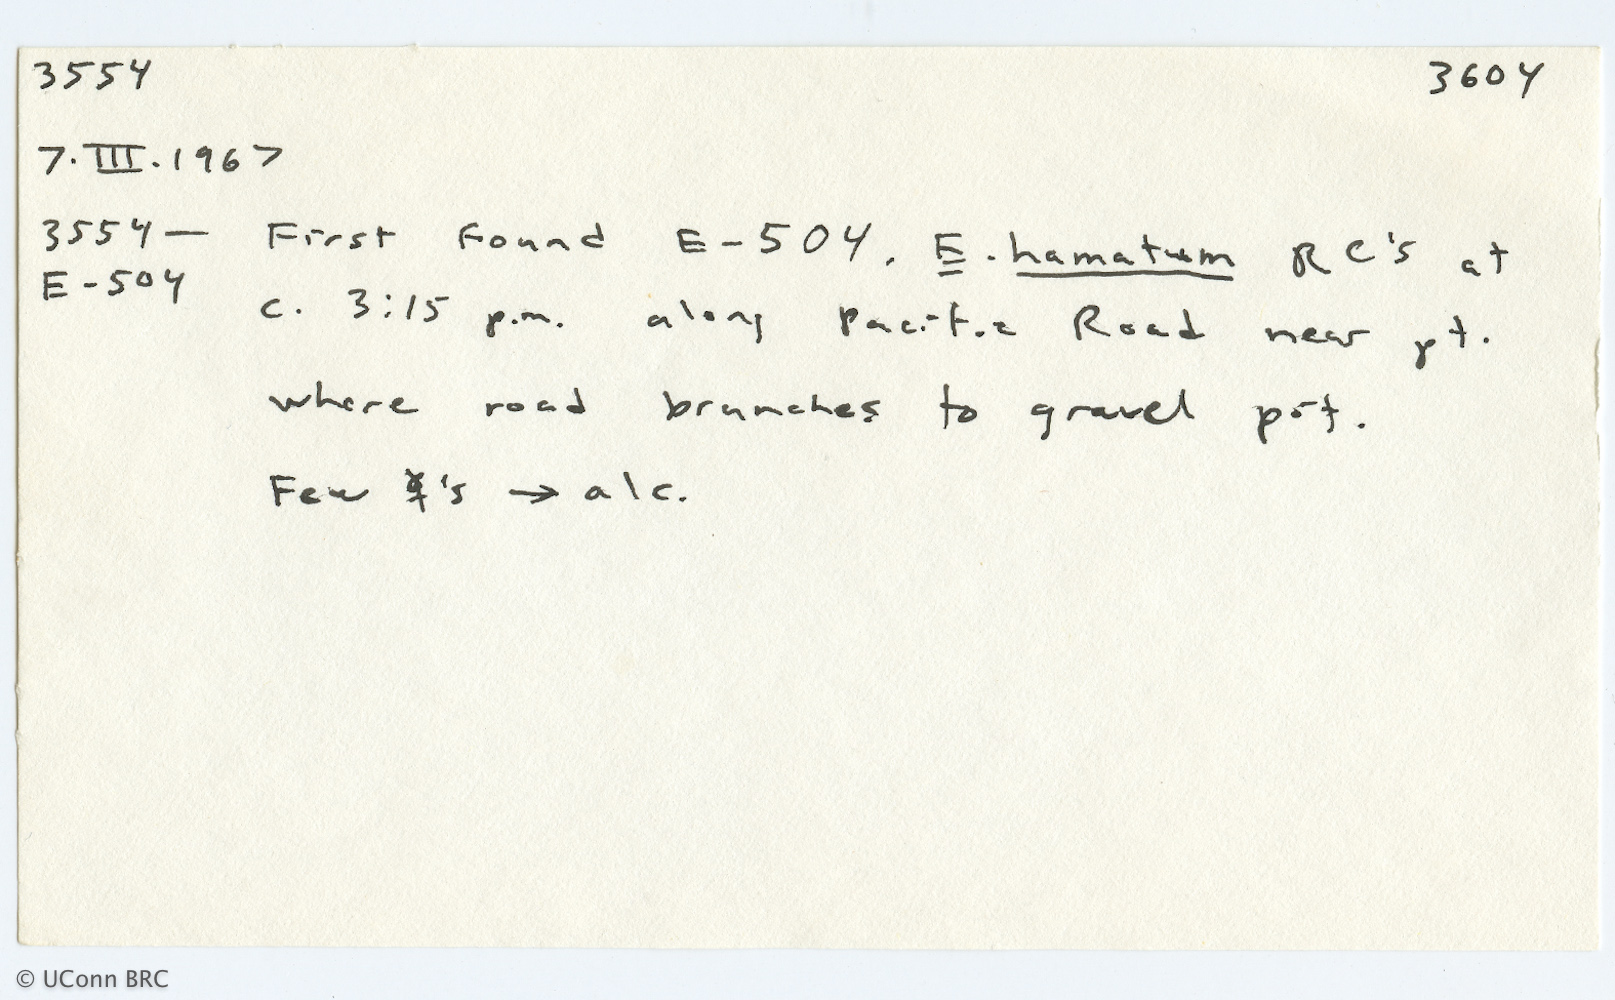 3554 3604
7.III.1967
3554— First found E-504, E. hamatum RC's at
E-504
c. 3:15 p.m. along Pacific Road near pt.
where road branches to gravel pit.
Few ☿'s → alc.
© UConn BRC